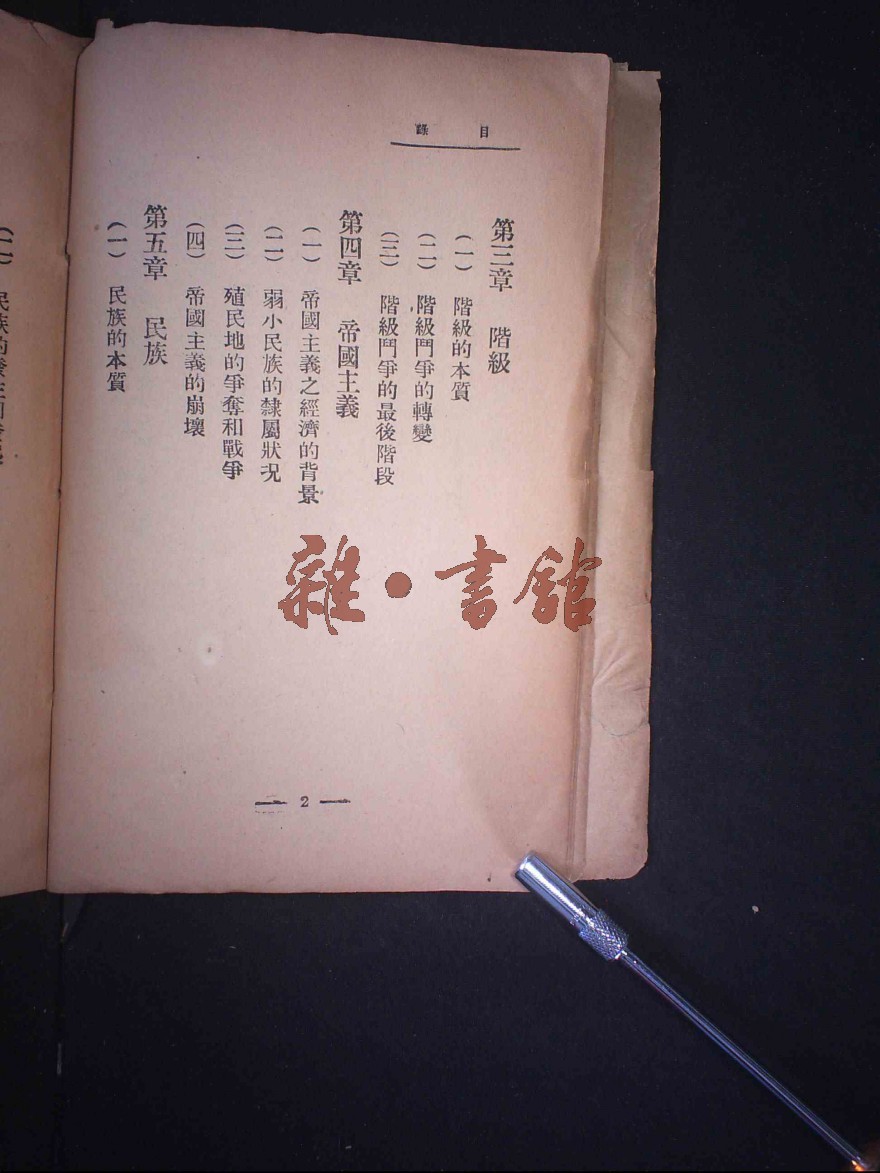 目錄
第三章 階級
(一) 階級的本質
(二) 階級鬥爭的轉變
(三) 階級鬥爭的最後階段
第四章 帝國主義
(一) 帝國主義之經濟的背景
(二) 弱小民族的隸屬狀况
(三) 殖民地的爭奪和戰爭
(四) 帝國主義的崩壞
第五章 民族
(一) 民族的本質
(二) 民族的發生
雜·書館
— 2 —